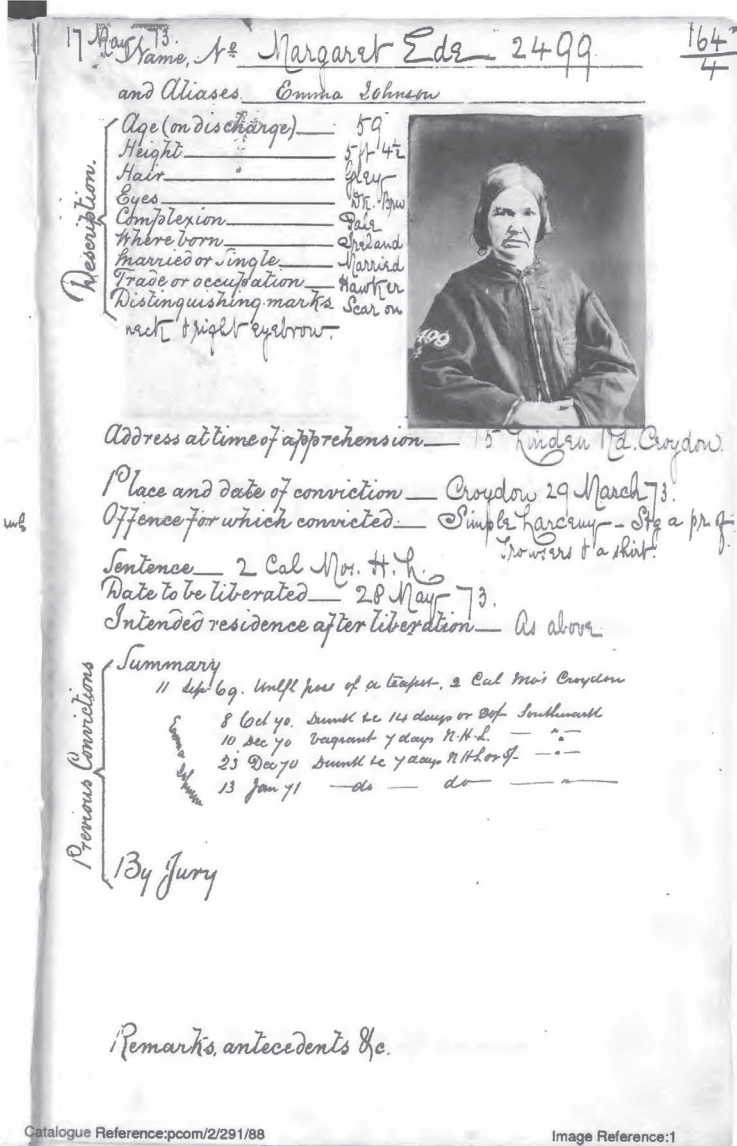 17 May 73.
Name, No Margaret Ede 2499
164
4
and Aliases. Emma Johnson
Description.
Age (on discharge) 59
Height 5 ft 4½
Hair Grey
Eyes Dk. Brw
Complexion Pale
Where born Ireland
Married or Single Married
Trade or occupation Hawker
Distinguishing marks Scar on
neck & right eyebrow.
499
4
Address at time of apprehension 15 Linden Rd. Croydon.
Place and date of conviction Croydon 29 March 73.
Offence for which convicted. Simple Larceny - Stg a pr. of
Trowsers & a shirt.
Sentence 2 Cal Mos. H. L.
Date to be liberated 28 May 73.
Intended residence after liberation As above
Previous Convictions
Summary
11 Sep 69. Unlfl poss of a teapot, 2 Cal Mos Croydon
8 Oct 70. Drunk &c 14 days or Southwark
10 Dec 70 Vagrant 7 days N.H.L. — " —
23 Dec 70 Drunk &c 7 days N H L or 5/- — " —
13 Jan 71 — do — do — " —
By Jury
Remarks, antecedents &c.
Catalogue Reference:pcom/2/291/88
Image Reference:1